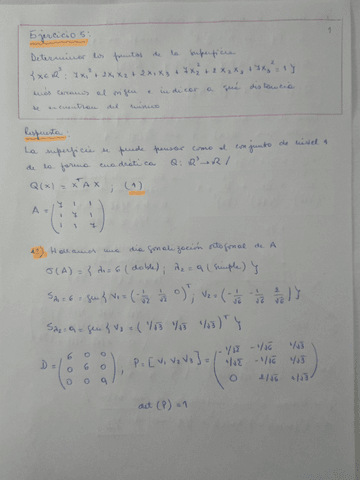 Ejercicio 5:
1
Determinar los puntos de la superficie
{x∈ℝ³ : 7x₁² + 2x₁x₂ + 2x₁x₃ + 7x₂² + 2x₂x₃ + 7x₃² = 1}
más cercanos al origen e indicar a qué distancia
se encuentran del mismo
Respuesta.
La superficie se puede pensar como el conjunto de nivel 1
de la forma cuadrática Q: ℝ³→ℝ /
Q(x) = xᵀAx ; (1)
A = (7 1 1
1 7 1
1 1 7)
Haremos una diagonalización ortogonal de A
σ(A) = { λ₁ = 6 (doble); λ₂ = 9 (simple) }
Sλ₁=6 = gen{ v₁ = (-1/√2 1/√2 0)ᵀ; v₂ = (-1/√6 -1/√6 2/√6) }
Sλ₂=9 = gen{ v₃ = (1/√3 1/√3 1/√3)ᵀ }
D = (6 0 0
0 6 0
0 0 9) , P = [v₁ v₂ v₃] = (-1/√2 -1/√6 1/√3
1/√2 -1/√6 1/√3
0 2/√6 1/√3)
det (P) = 1